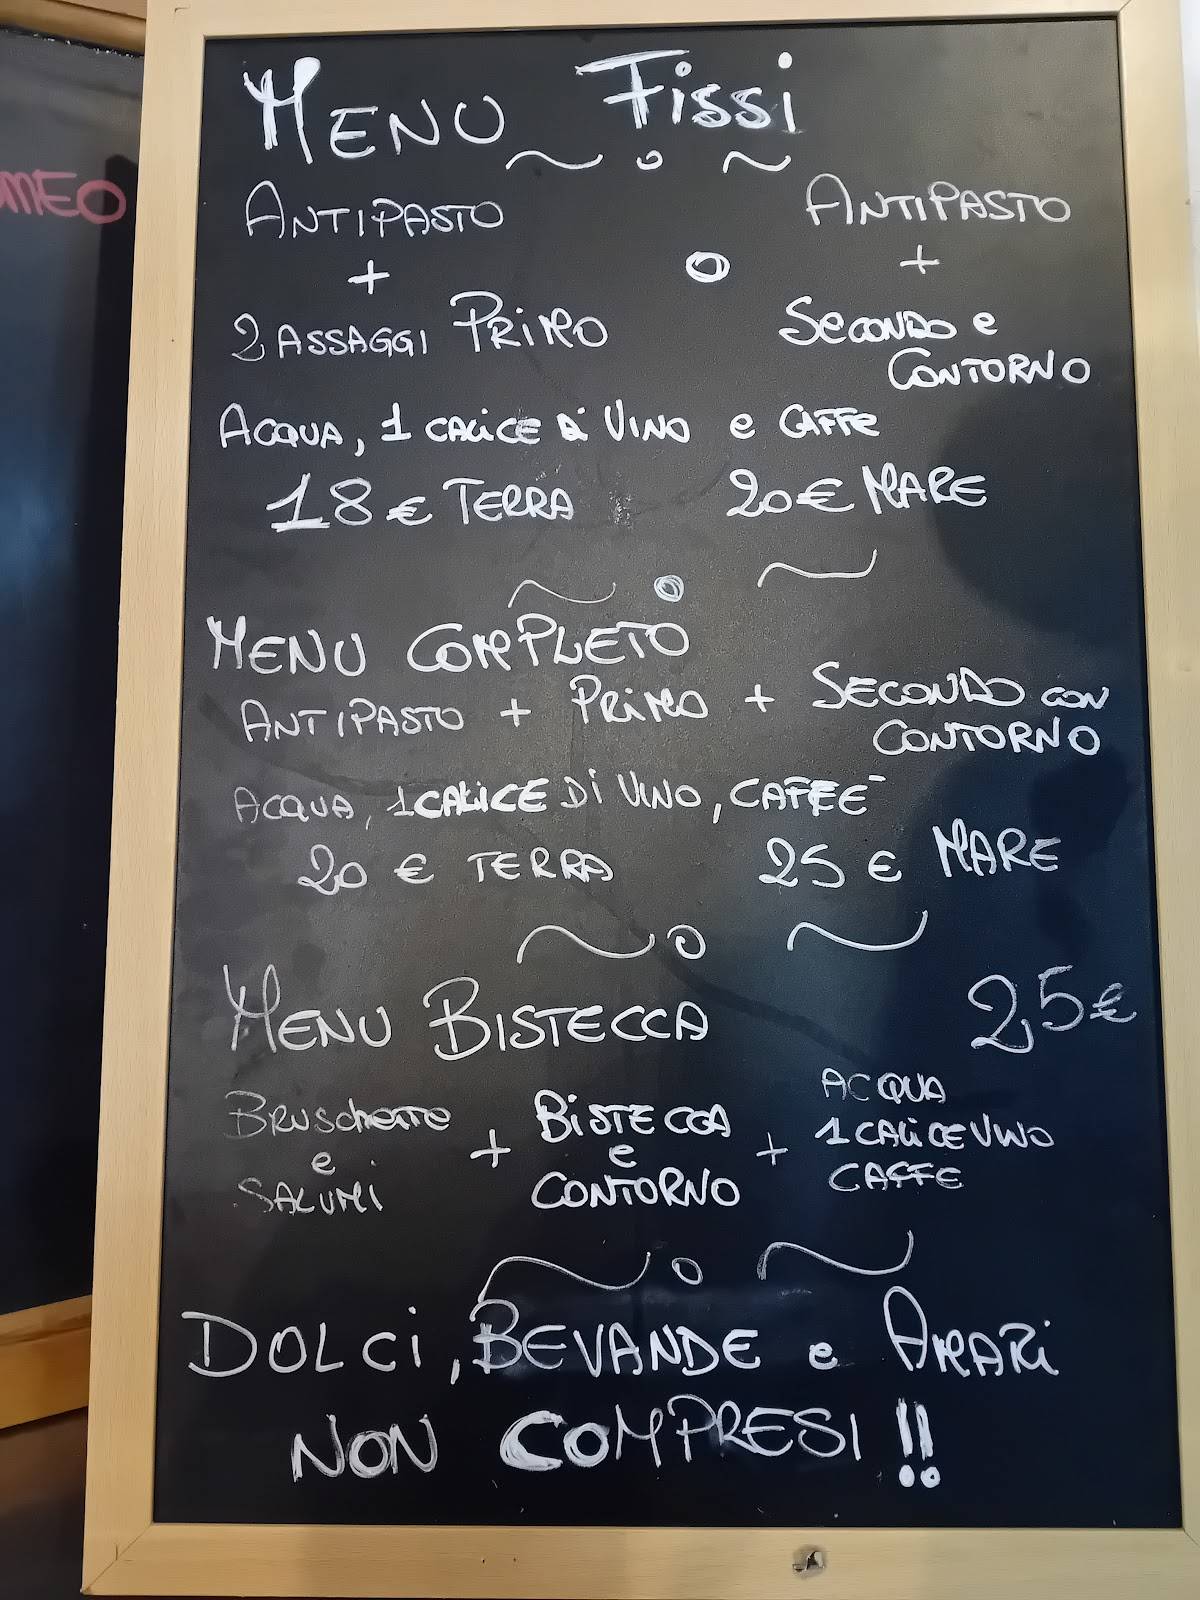 MENU Fissi
ANTIPASTO
+
2 ASSAGGI PRIMO
O
ANTIPASTO
+
SECONDO e
CONTORNO
ACQUA, 1 CALICE di VINO e CAFFE
18 € TERRA 20 € MARE
MENU COMPLETO
ANTIPASTO + PRIMO + SECONDO CON
CONTORNO
ACQUA, 1 CALICE Di VINO, CAFFE'
20 € TERRA 25 € MARE
MENU BISTECCA 25 €
BRUSCHETTE
e
SALUMI
+
BISTECCA
e
CONTORNO
+
ACQUA
1 CALICE VINO
CAFFE
DOLCI, BEVANDE e AMARI
NON COMPRESI !!
MEO